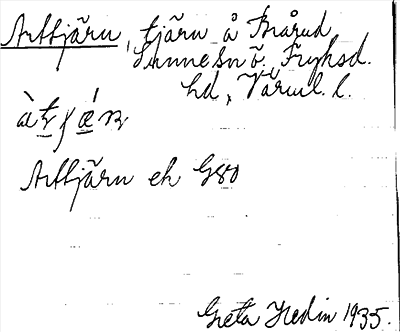 Arttjärn, tjärn å Brårud
Sunne sn ö. Fryksd.
hd, Värml. l.
àt̲ʃǽn
Arttjärn ek G80
Greta Hedin 1935.